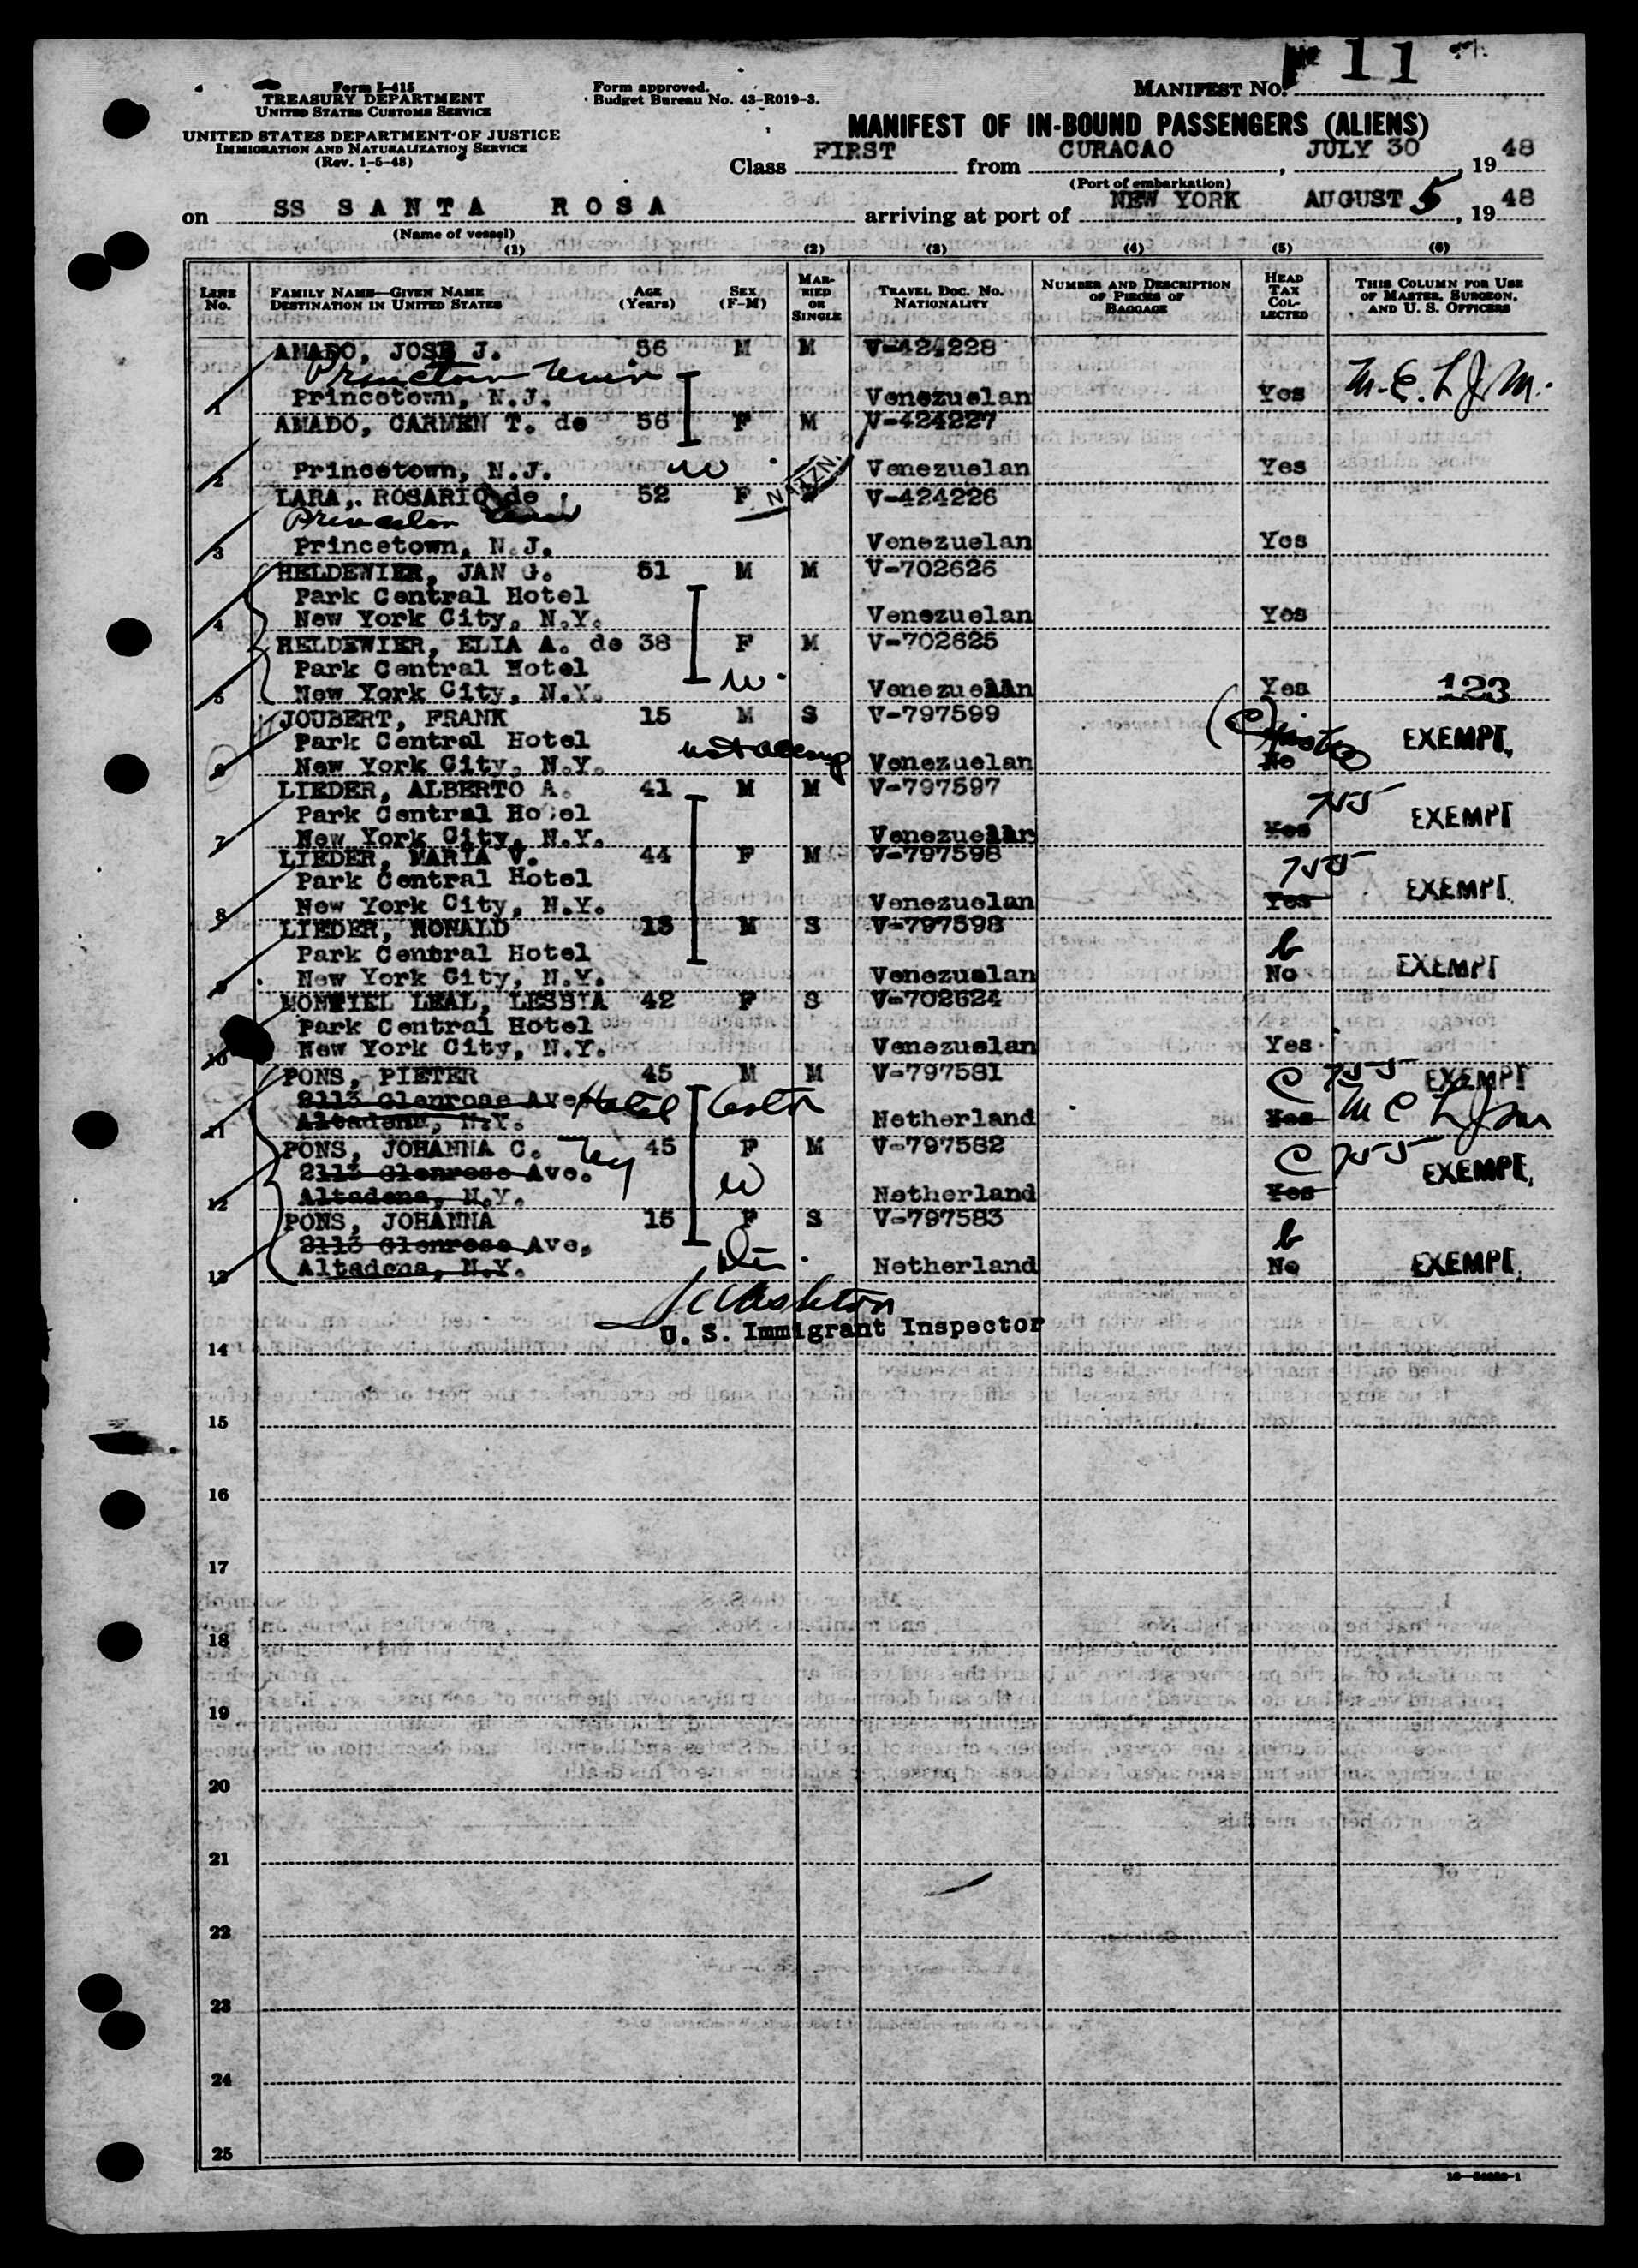 MANIFEST NO. 11
Form I-415
TREASURY DEPARTMENT
UNITED STATES CUSTOMS SERVICE
UNITED STATES DEPARTMENT OF JUSTICE
IMMIGRATION AND NATURALIZATION SERVICE
(Rev. 1-5-48)
Form approved.
Budget Bureau No. 43-R019-3.
MANIFEST OF IN-BOUND PASSENGERS (ALIENS)
Class FIRST from CURACAO, JULY 30, 1948
(Port of embarkation)
on SS SANTA ROSA arriving at port of NEW YORK AUGUST 5, 1948
(Name of vessel)
(1) (2) (3) (4) (5) (6)
LINE No. FAMILY NAME—GIVEN NAME DESTINATION IN UNITED STATES AGE (Years) SEX (F-M) MARRIED OR SINGLE TRAVEL DOC. NO. NATIONALITY NUMBER AND DESCRIPTION OF PIECES OF BAGGAGE HEAD TAX COLLECTED THIS COLUMN FOR USE OF MASTER, SURGEON, AND U. S. OFFICERS
AMADO, JOSE J. 56 M M V-424228
1 Princetown, N.J. Venezuelan Yes
AMADO, CARMEN T. de 56 F M V-424227
2 Princetown, N.J. W Venezuelan Yes
LARA, ROSARIO de 52 F V-424226
NATZN.
3 Princetown, N.J. Venezuelan Yes
HELDEWIER, JAN G. 51 M M V-702626
Park Central Hotel
4 New York City, N.Y. Venezuelan Yes
HELDEWIER, ELIA A. de 38 F M V-702625
Park Central Hotel
5 New York City, N.Y. W. Venezuelan Yes 123
JOUBERT, FRANK 15 M S V-797599
Park Central Hotel EXEMPT,
6 New York City, N.Y. Venezuelan No
LIEDER, ALBERTO A. 41 M M V-797597
Park Central Hotel 755 EXEMPT
7 New York City, N.Y. Venezuelan Yes
LIEDER, MARIA V. 44 F M V-797598
Park Central Hotel 755 EXEMPT.
8 New York City, N.Y. Venezuelan Yes
LIEDER, RONALD 13 M S V-797598
Park Central Hotel b EXEMPT
9 New York City, N.Y. Venezuelan No
MONTIEL LEAL, LESBIA 42 F S V-702624
Park Central Hotel
10 New York City, N.Y. Venezuelan Yes
PONS, PIETER 45 M M V-797581 C 755 EXEMPT
2113 Glenrose Ave. Hotel
11 Altadena, N.Y. Netherland Yes
PONS, JOHANNA C. 45 F M V-797582 C 755
2113 Glenrose Ave. W EXEMPT,
12 Altadena, N.Y. Netherland Yes
PONS, JOHANNA 15 F S V-797583
2113 Glenrose Ave, b
13 Altadena, N.Y. Netherland No EXEMPT,
U. S. Immigrant Inspector
14
15
16
17
18
19
20
21
22
23
24
25